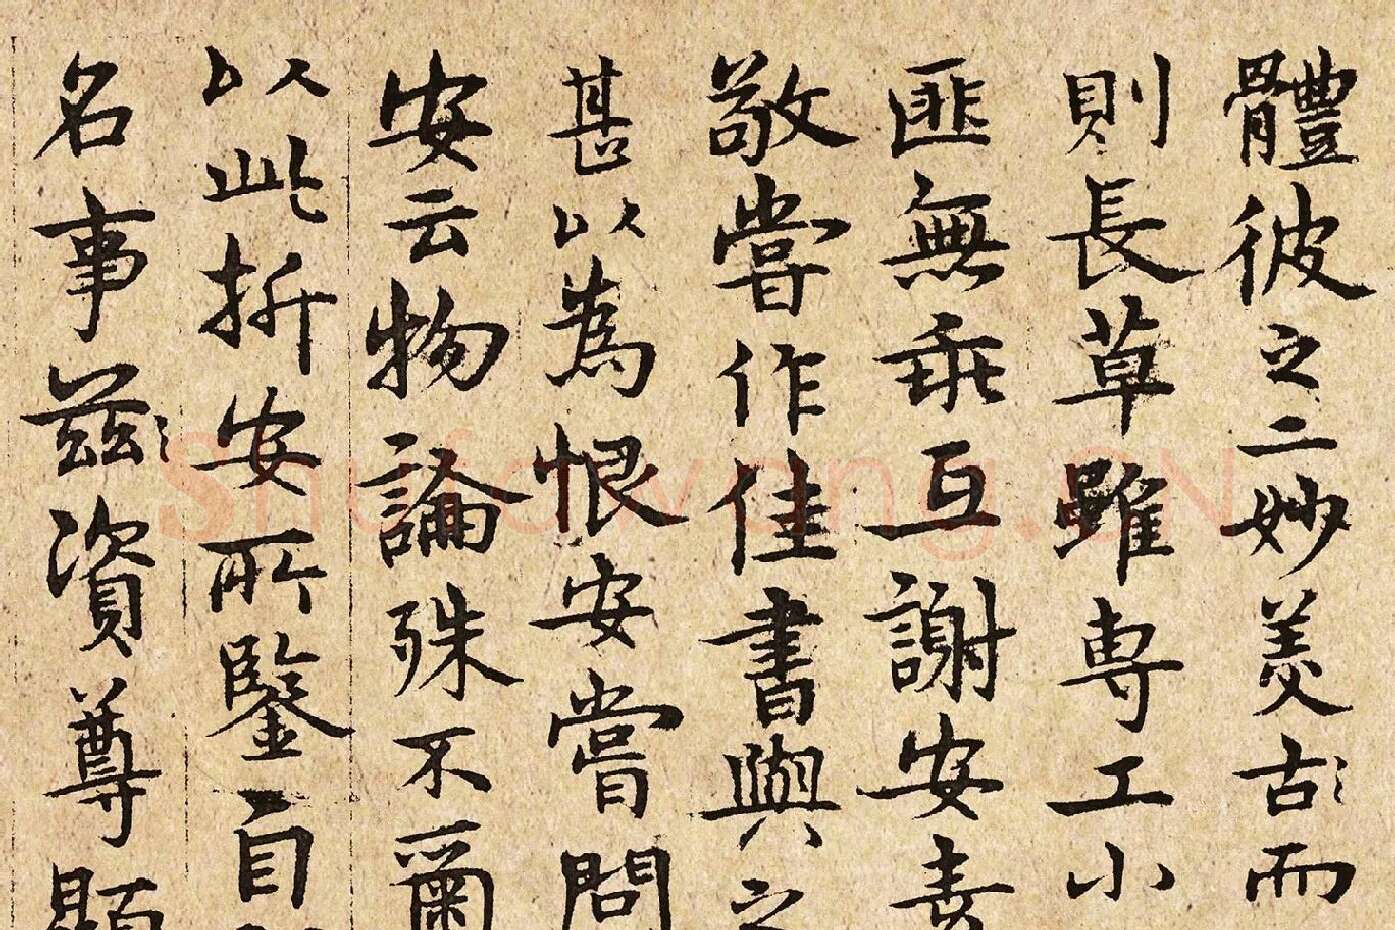 體彼之二妙羙古〻而
則長草雖専工小
匪無乖互謝安素
敬嘗作佳書與之
甚以為恨安嘗問
安云物論殊不爾
以此折安所鑒自
名事兹〻資尊顯
Shufawang.CN